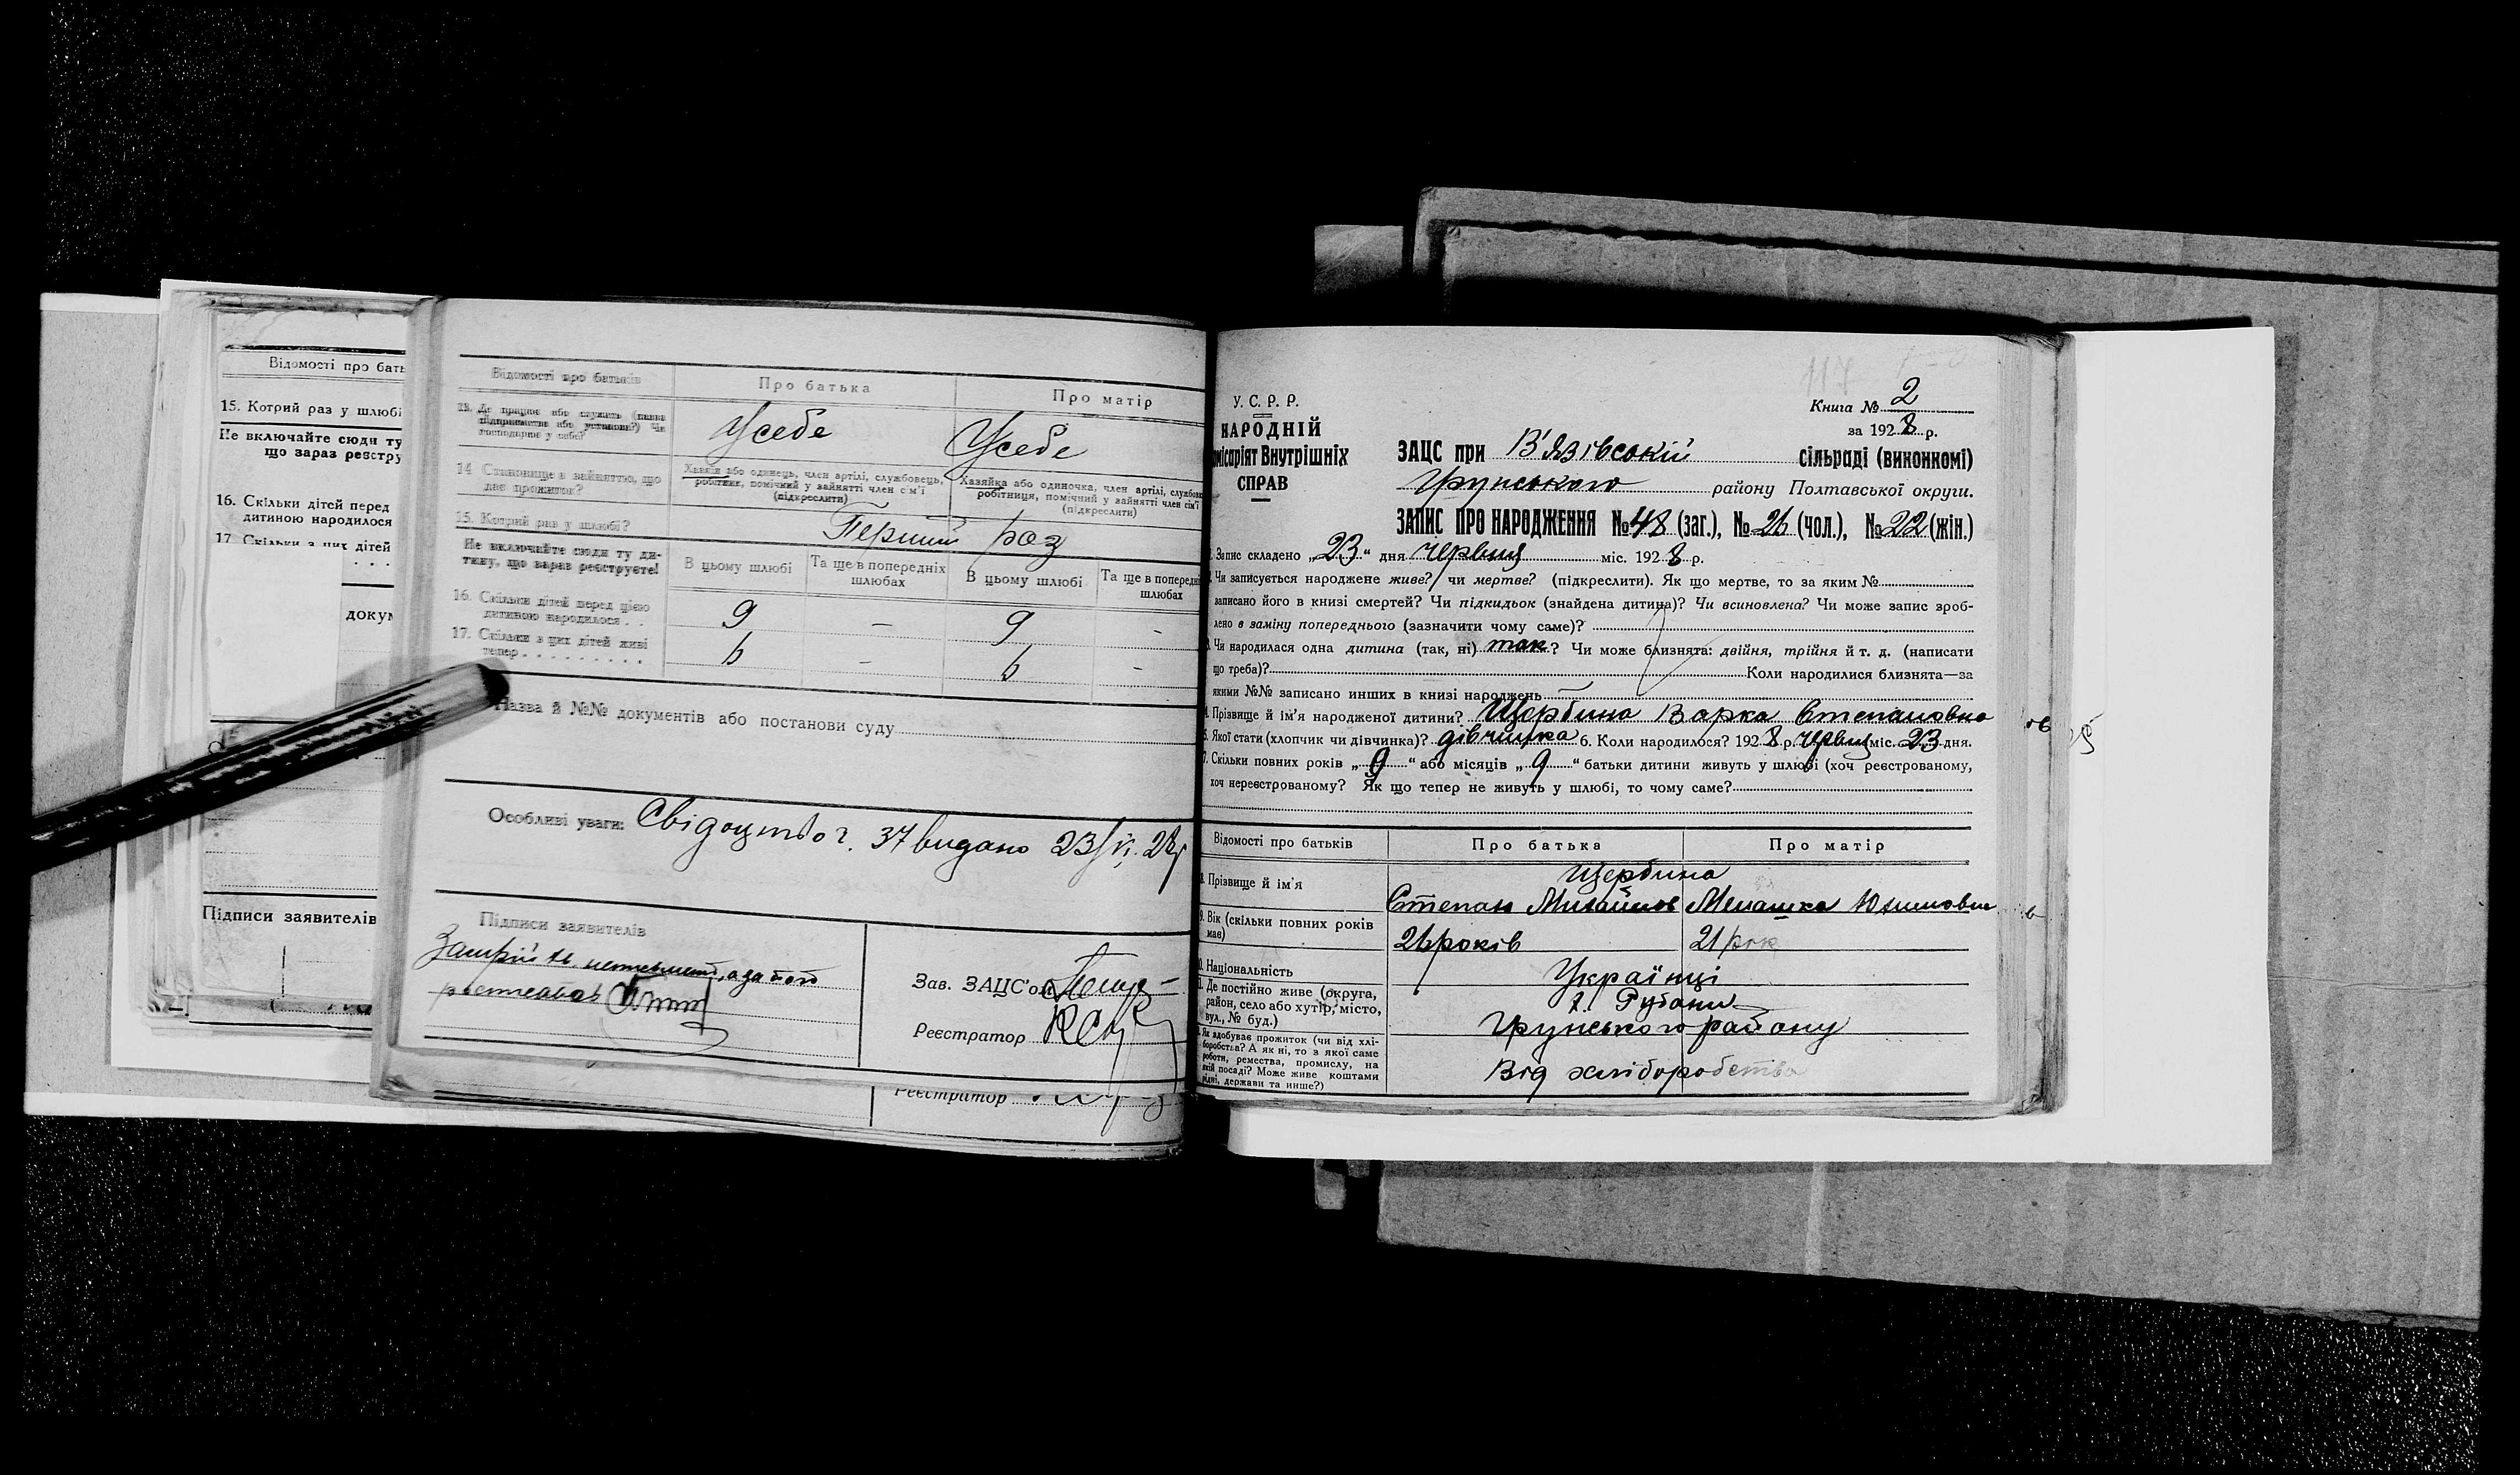 Відомості про бать
15. Котрий раз у шлюбі
Не включайте сюди ту
що зараз реєстру
16. Скільки дітей перед
дитиною народилося
17. Скільки з цих дітей
докум
Підписи заявителів
Відомості про батьків
Про батька
Про матір
13. Де працює або служить (назва
підприємства або установи?) Чи
господарює у себе?
Усебе
Усебе
14 Становище в зайняттю, що
дає прожиток?
Хазяїн або одинець, член артілі, службовець,
робітник, помічний у зайнятті член сім'ї
(підкреслити)
Хазяйка або одиночка, член артілі, службов
робітниця, помічний у зайнятті член сім'ї
(підкреслити)
15. Котрий раз у шлюбі?
Перший раз
Не включайте сюди ту ди-
тину, що зараз реєструєте!
В цьому шлюбі
Та ще в попередніх
шлюбах
В цьому шлюбі
Та ще в попередні
шлюбах
16. Скільки дітей перед цією
дитиною народилося . .
9 – 9 -
17. Скільки з цих дітей живі
тепер . . . . . . . . . .
6 – 6 -
Назва й №№ документів або постанови суду
Особливі уваги: Свідоцтво ч. 37 видано 23/VI. 28р
Підписи заявителів
Зав. ЗАЦС'ом
Реєстратор
Реєстратор
У. С. Р. Р.
НАРОДНІЙ
місаріят Внутрішніх
СПРАВ
Книга № 2
за 1928 р.
ЗАЦС при В'язівській сільраді (виконкомі)
Грунського району Полтавської округи.
ЗАПИС ПРО НАРОДЖЕННЯ №48 (заг.), №26 (чол.), №22 (жін.)
Запис складено „23“ дня червня міс. 1928 р.
Чи записується народжене живе? чи мертве? (підкреслити). Як що мертве, то за яким №
записано його в книзі смертей? Чи підкидьок (знайдена дитина)? Чи всиновлена? Чи може запис зроб-
лено в заміну попереднього (зазначити чому саме)?
Чи народилася одна дитина (так, ні) так? Чи може близнята: двійня, трійня й т. д. (написати
що треба)? Коли народилися близнята—за
якими №№ записано инших в книзі народжень –
Прізвище й ім'я народженої дитини? Щербина Варка Степановна
Якої стати (хлопчик чи дівчинка)? дівчинка 6. Коли народилося? 1928 р. червня міс. 23 дня.
Скільки повних років „9“ або місяців „9“ батьки дитини живуть у шлюбі (хоч реєстрованому,
хоч нереєстрованому? Як що тепер не живуть у шлюбі, то чому саме?
Відомості про батьків
Про батька
Про матір
Прізвище й ім'я
Щербина
Степан Михайлов
9. Вік (скільки повних років
має)
26 років
21 рік
Національність
Українці
Де постійно живе (округа,
район, село або хутір, місто,
вул., № буд.)
х. Рубани
Грунського району
Як здобуває прожиток (чи від хлі-
боробства? А як ні, то з якої саме
роботи, ремества, промислу, на
якій посаді? Може живе коштами
рідні, держави та инше?)
Від хліборобства